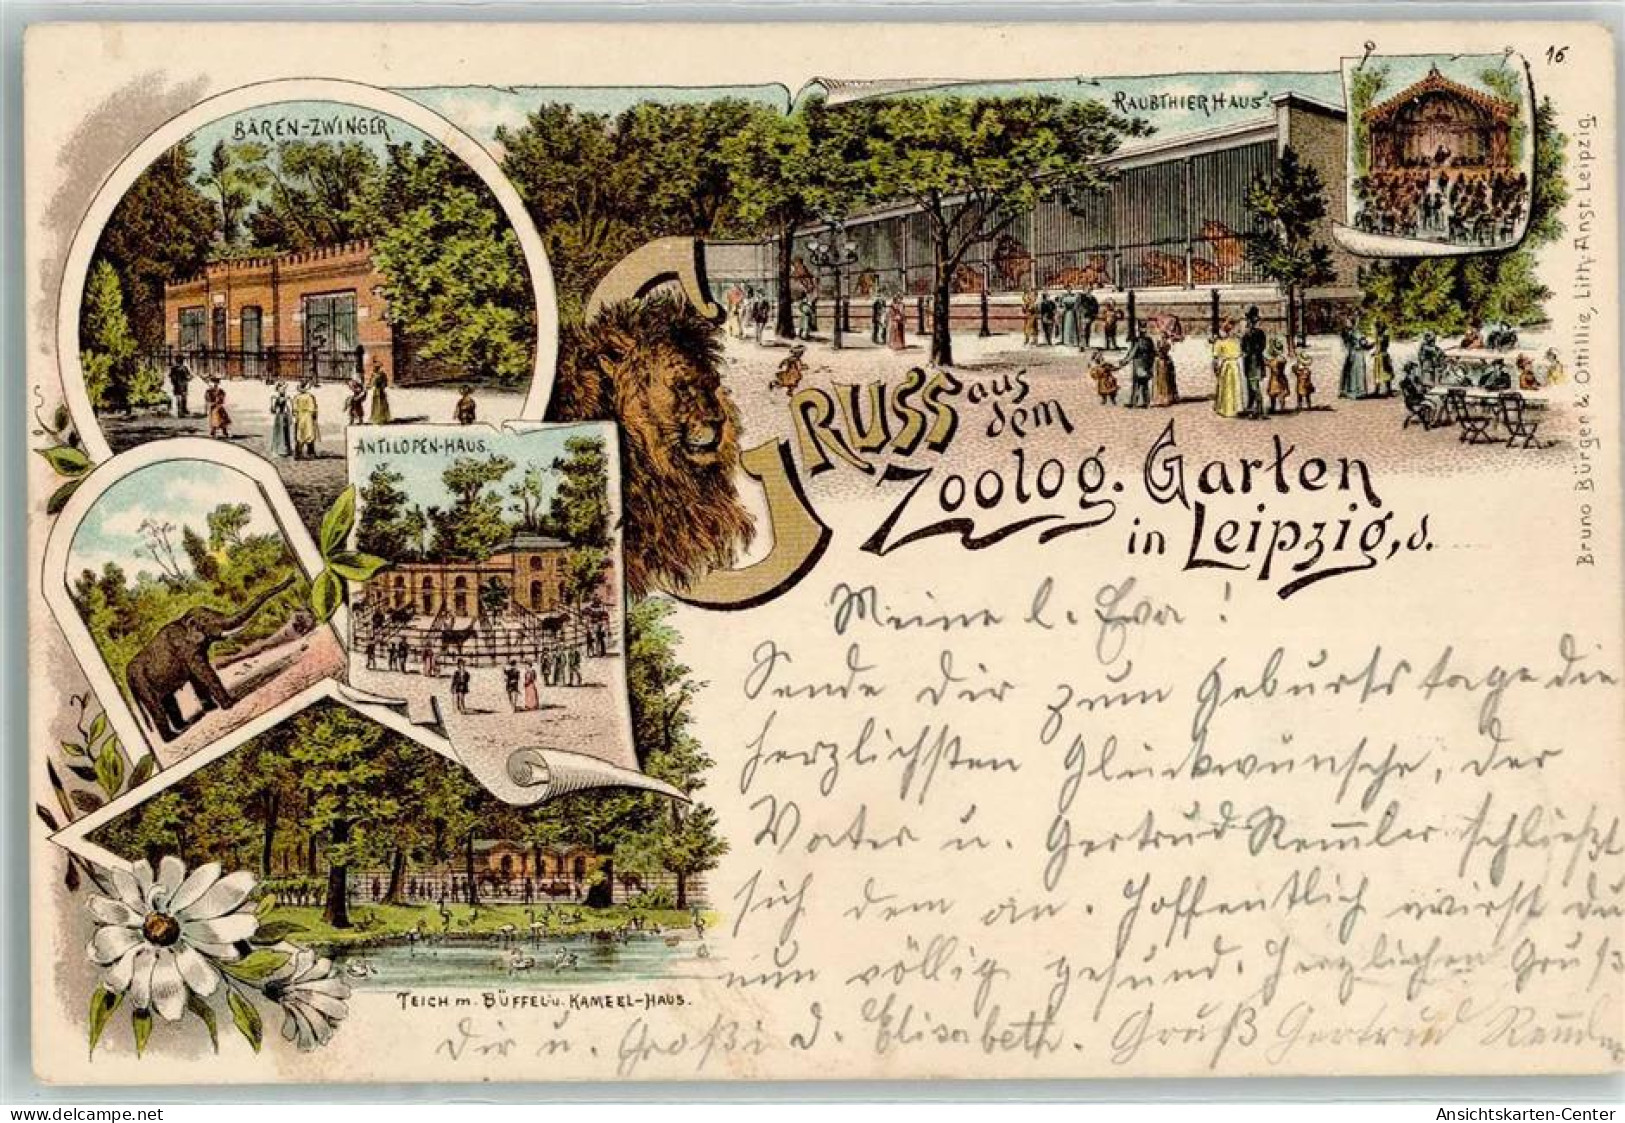 16
BÄREN-ZWINGER.
RAUBTHIERHAUS
ANTILOPEN-HAUS.
GRUSS aus
dem
Zoolog. Garten
in Leipzig, d.
Bruno Bürger & Ottilie, Lith. Anst. Leipzig.
Meine l. Eva!
Sende Dir zum Geburtstage die
herzlichsten Glückwünsche, der
Vater u. Gertrud Remler schließt
sich dem an. Hoffentlich wirst du
nun völlig gesund. Herzlichen Gruß
TEICH m. BÜFFEL u. KAMEEL-HAUS.
Dir u. Großi d. Elisabeth. Gruß Gertrud
www.oldthing.de
Ansichtskarten-Center